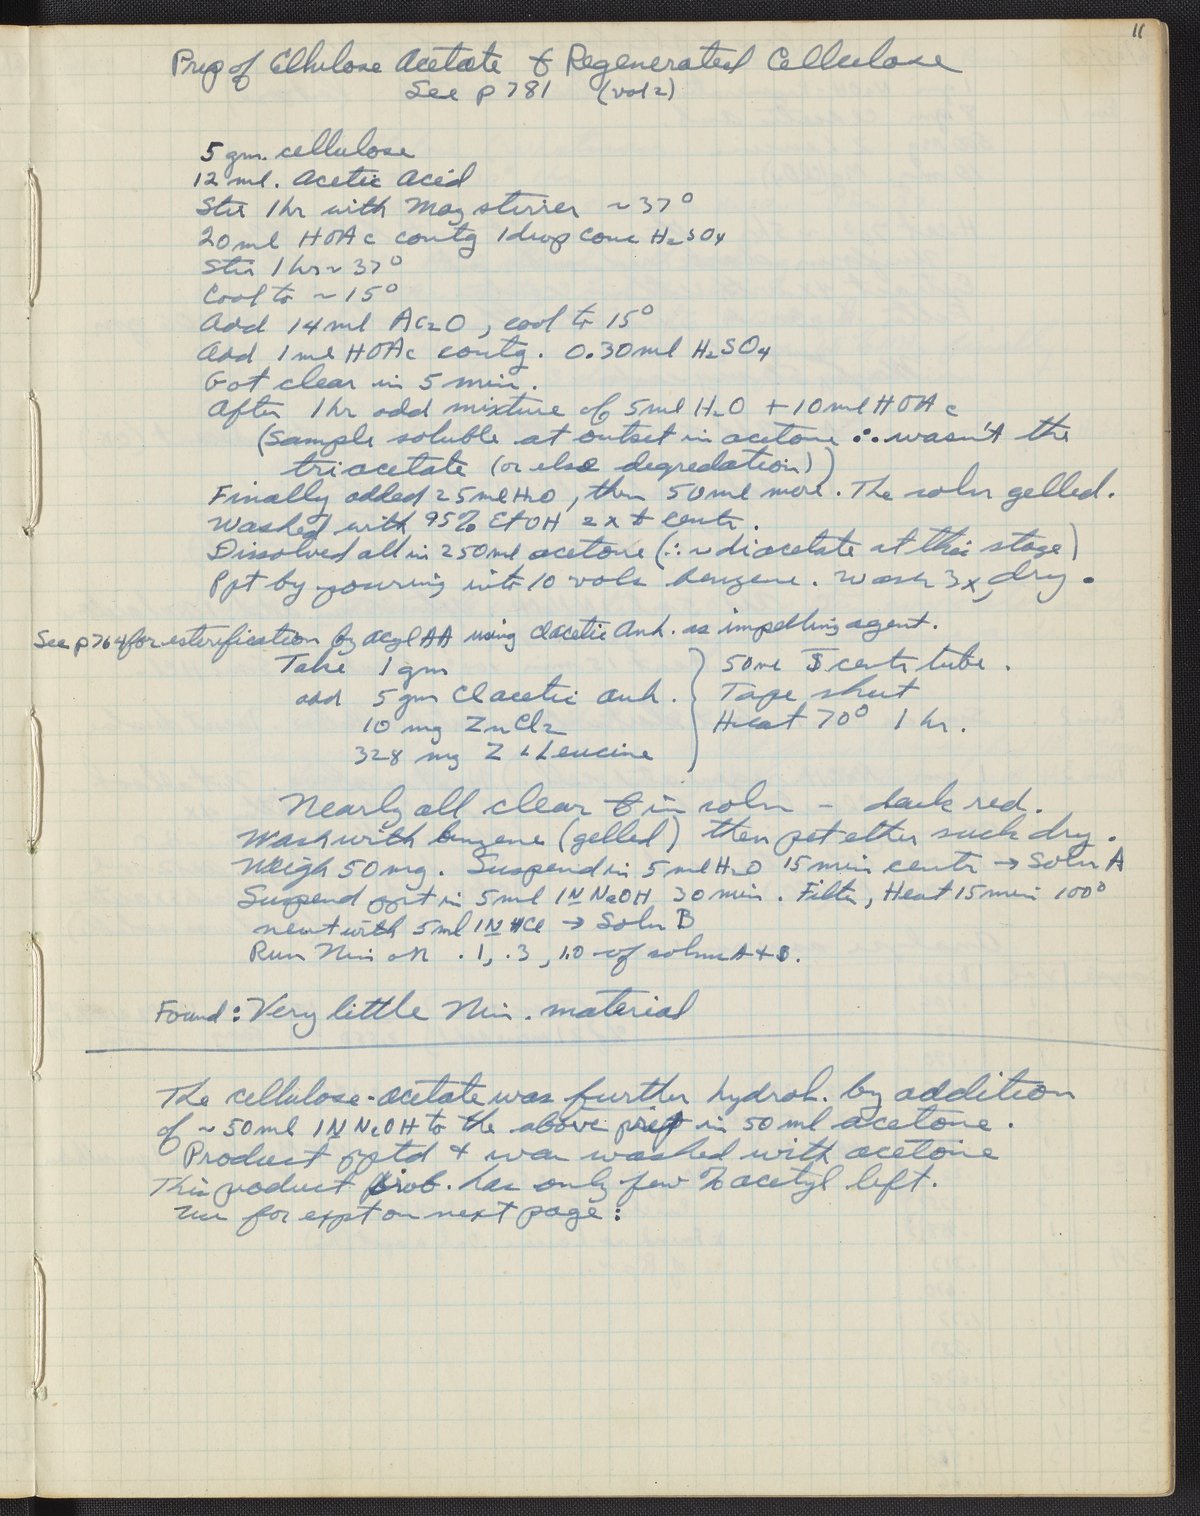 11
Prep of Cellulose Acetate & Regenerated Cellulose
See p 781 (vol 2)
5 gm. cellulose
12 ml. Acetic Acid
Stir 1 hr with Mag stirrer ~37°
20 ml HOAc contg 1 drop conc H2SO4
Stir 1 hr ~ 37°
Cool to ~15°
Add 14 ml Ac2O, cool to 15°
Add 1 ml HOAc contg. 0.30 ml H2SO4
Got clear in 5 min.
After 1 hr add mixture of 5 ml H2O + 10 ml HOAc
(Sample soluble at outset in acetone ∴ wasn't the
triacetate (or else degredation))
Finally added 25 ml H2O, then 50 ml more. The soln gelled.
Washed with 95% EtOH 2x & centr.
Dissolved all in 250 ml acetone (∴ ~ diacetate at this stage)
Ppt by pouring into 10 vols benzene. Wash 3x, dry.
See p 764 for esterification by acyl AA using clacetic anh. as impelling agent.
Take 1 gm } 50 ml $ centr tube.
add 5 gm Clacetic anh. } Tape shut
10 mg ZnCl2 } Heat 70° 1 hr.
328 mg Z L Leucine
Nearly all clear & in soln - dark red.
Wash with benzene (gelled) then pet ether suck dry.
Weigh 50 mg. Suspend in 5 ml H2O 15 min centr → Soln A
Suspend ppt in 5 ml 1N NaOH 30 min. Filter, Heat 15 min 100°
neut with 5 ml 1N HCl → Soln B
Run Nin on .1, .3, 1.0 of solns A + B.
Found: Very little Nin. material
The cellulose-acetate was further hydrol. by addition
of ~50 ml 1N NaOH to the above in 50 ml acetone.
Product pptd & was washed with acetone
This product prob. has only few % acetyl left.
Use for expt on next page: